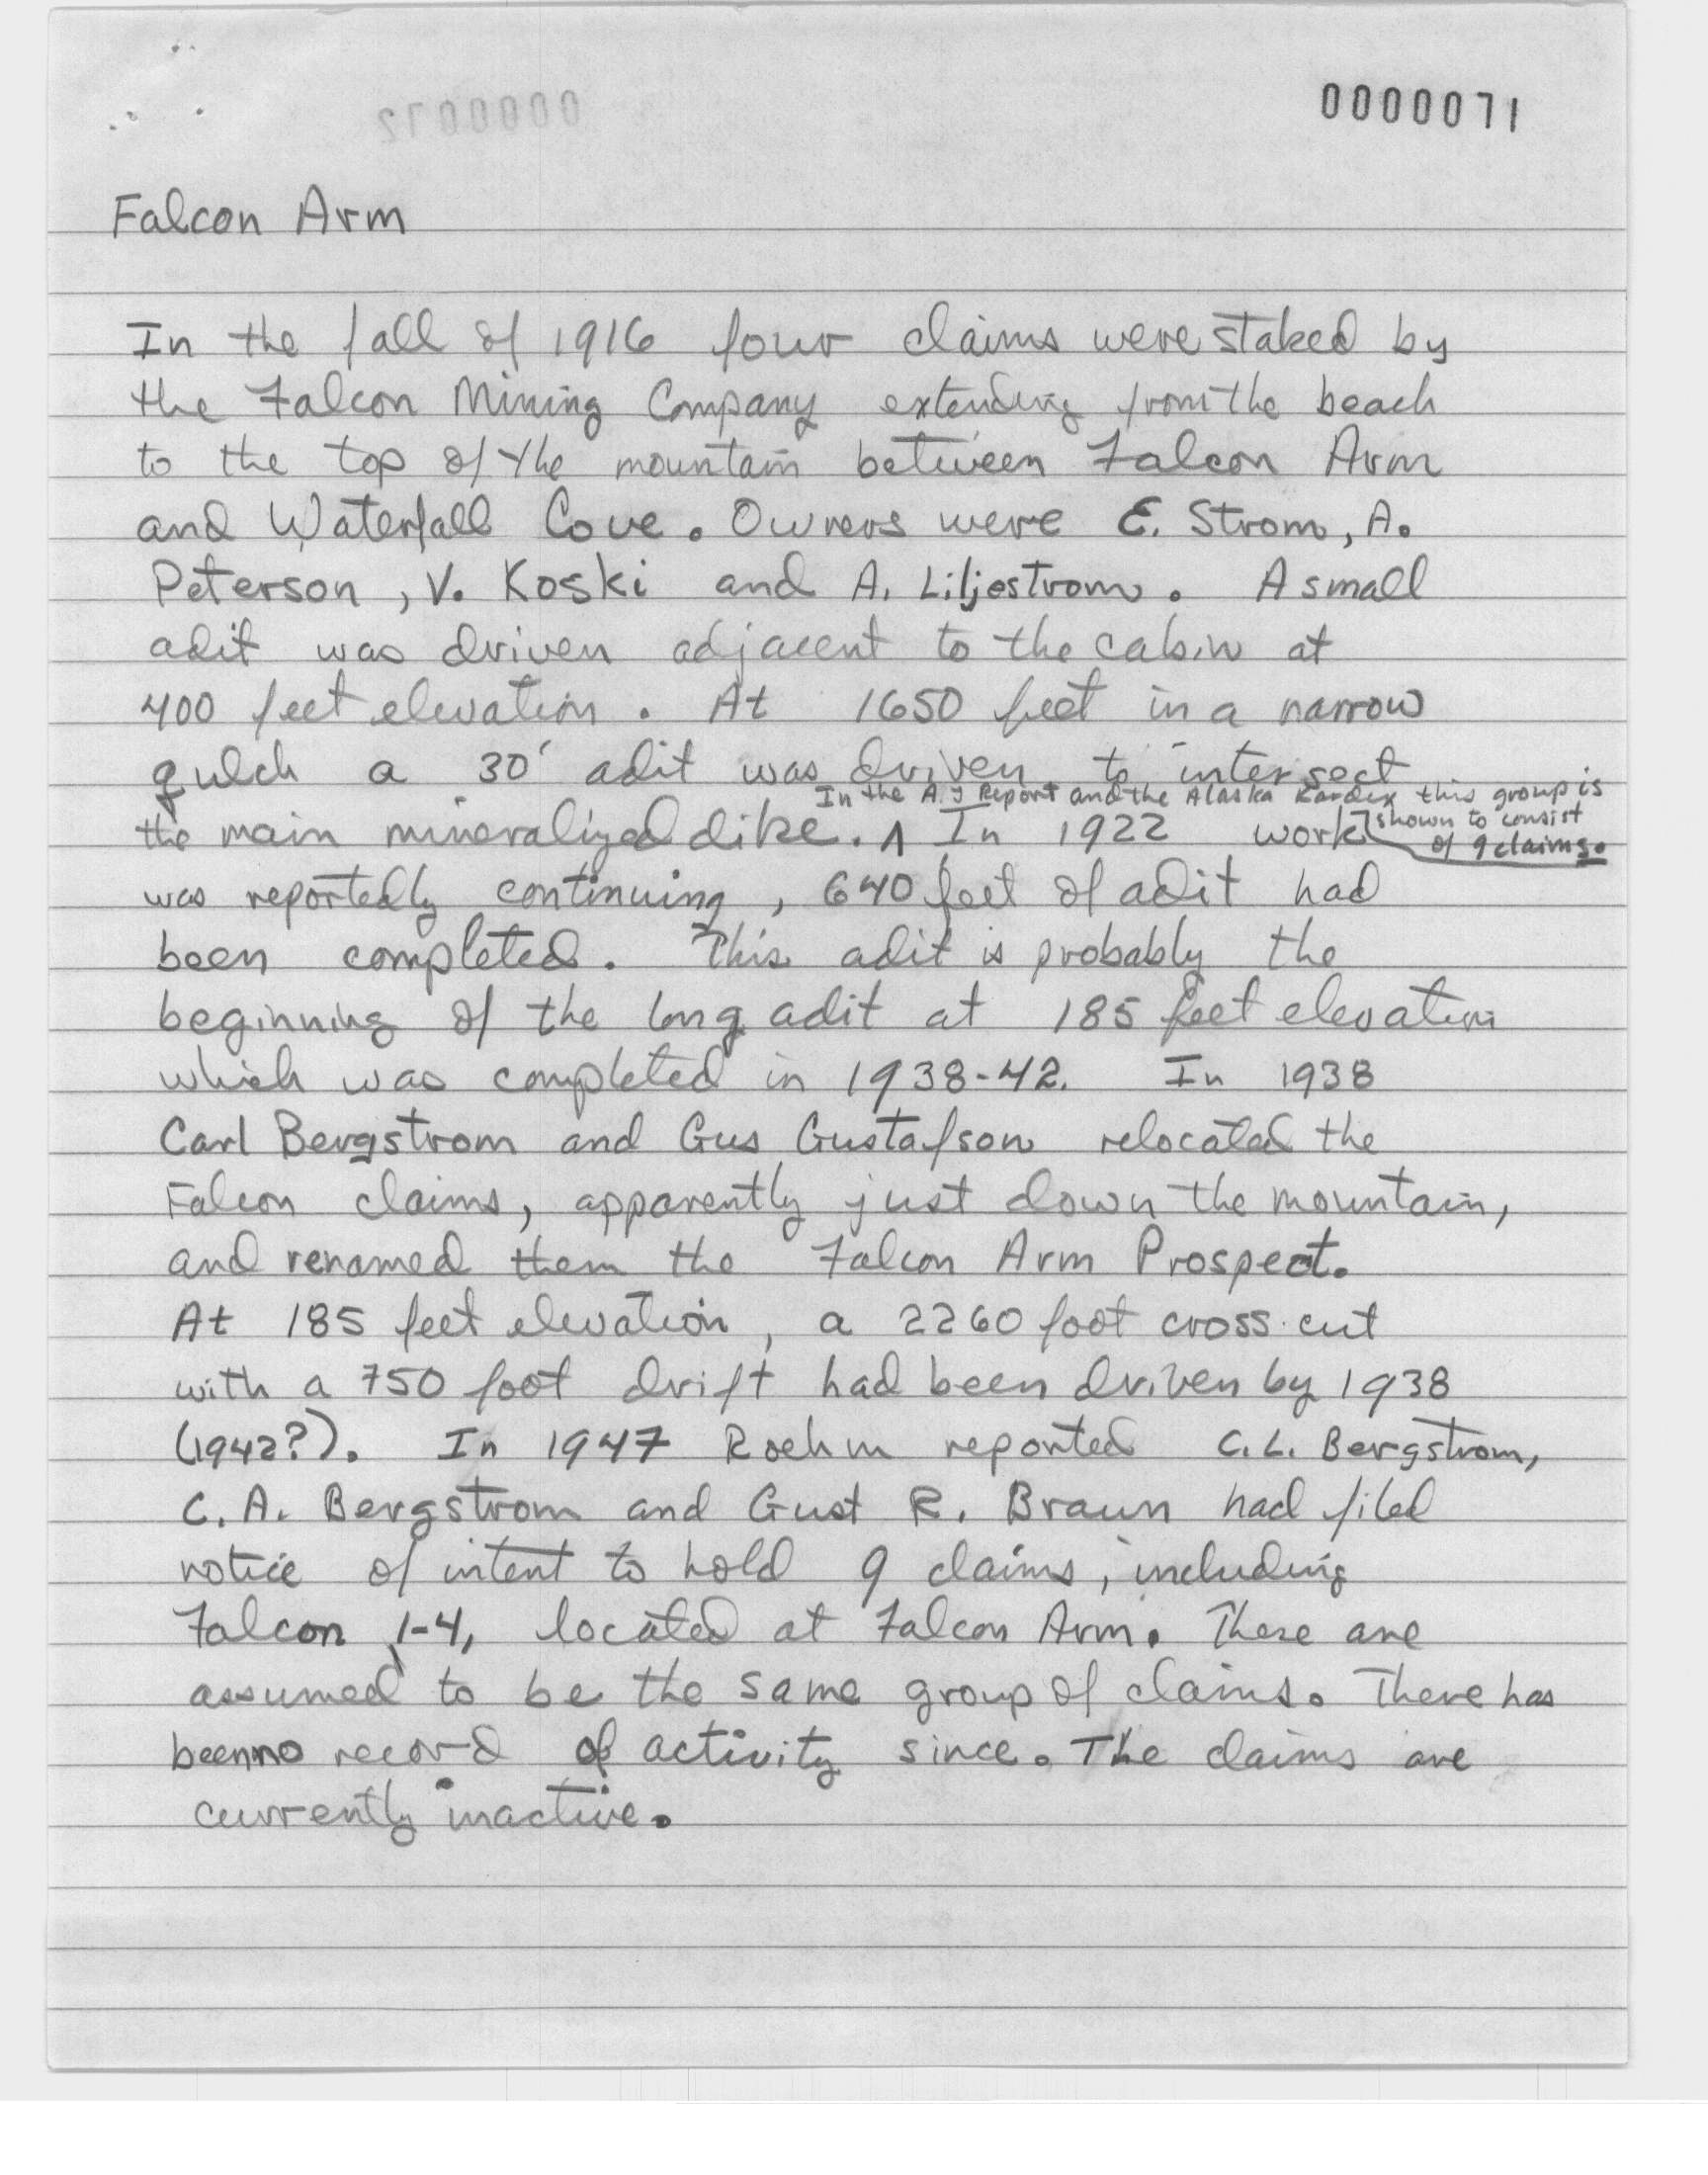 0000071
Falcon Arm
In the fall of 1916 four claims were staked by
the Falcon Mining Company extending from the beach
to the top of the mountain between Falcon Arm
and Waterfall Cove. Owners were E. Strom, A.
Peterson, V. Koski and A. Liljestrom. A small
adit was driven adjacent to the cabin at
400 feet elevation. At 1650 feet in a narrow
gulch a 30' adit was driven to intersect
In the A.J Report and the Alaska Kardex this group is
shown to consist
of 9 claims.
the main mineralized dike. ∧ In 1922 work
was reportedly continuing, 640 feet of adit had
been completed. This adit is probably the
beginning of the long adit at 185 feet elevation
which was completed in 1938-42. In 1938
Carl Bergstrom and Gus Gustafson relocated the
Falcon claims, apparently just down the mountain,
and renamed them the Falcon Arm Prospect.
At 185 feet elevation, a 2260 foot cross-cut
with a 750 foot drift had been driven by 1938
(1942?). In 1947 Roehm reported C.L. Bergstrom,
C.A. Bergstrom and Gust R. Braun had filed
notice of intent to hold 9 claims, including
Falcon 1-4, located at Falcon Arm. These are
assumed to be the same group of claims. There has
been no record of activity since. The claims are
currently inactive.